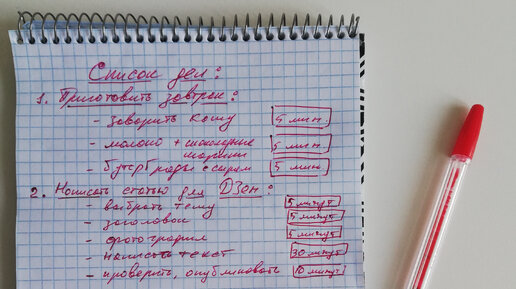 Список дел:
1. Приготовить завтрак:
- заварить кашу 4 мин.
- молоко + шоколадные шарики 5 мин.
- бутерброды с сыром 5 мин
2. Написать статью для ДЗен:
- выбрать тему 5 минут
- заголовок 5 минут
- фотографии 4 минут
- написать текст 30 минут
- проверить, опубликовать 10 минут